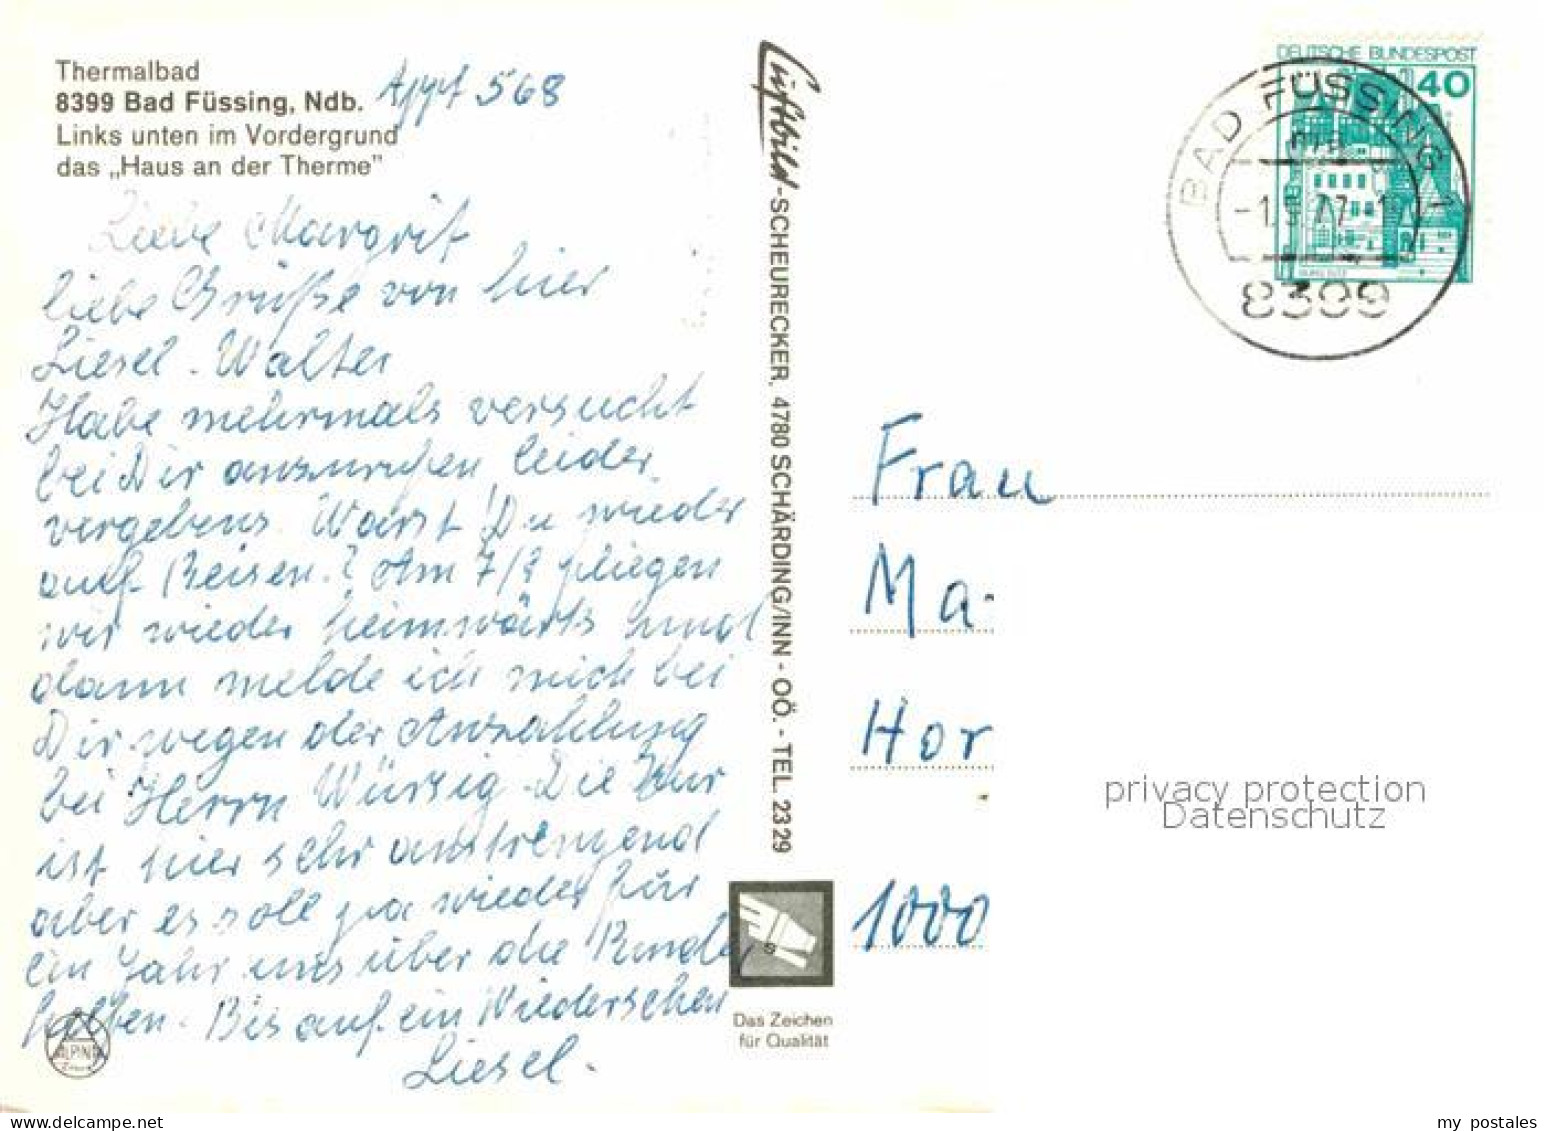 Thermalbad
8399 Bad Füssing, Ndb. Appt 568
Links unten im Vordergrund
das „Haus an der Therme"
Liebe Margrit
liebe Grüße von hier
Liesel - Walter
Habe mehrmals versucht
bei Dir anzurufen leider
vergebens. Warst Du wieder
auf Reisen? Am 7/9 fliegen
wir wieder heimwärts und
dann melde ich mich bei
Dir wegen der Anzahlung
bei Herrn Würzig. Die Kur
ist hier sehr anstrengend
aber es soll ja wieder für
ein Jahr uns über die Runden
helfen. Bis auf ein Wiedersehen
Liesel.
ALPINA
Luftbild-SCHEURECKER, 4780 SCHÄRDING/INN - OÖ. - TEL. 2329
Das Zeichen
für Qualität
DEUTSCHE BUNDESPOST
40
BAD FÜSSING 1
8399
Frau
Ma
Hor
1000
privacy protection
Datenschutz
my postales